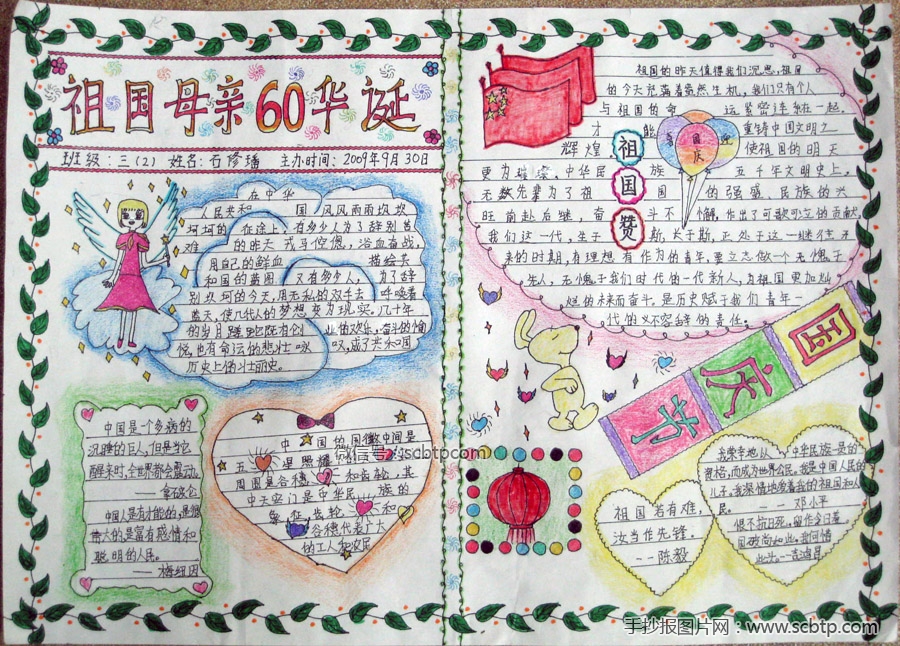 祖国母亲60华诞
班级:三(2) 姓名:石修璠 主办时间:2009年9月30日
在中华
人民共和 国 风风雨雨坎坎
坷坷的 征途上,有多少人为了辞别苦
难 的昨天 戎马倥偬,浴血奋战,
用自己的鲜血 描绘共
和国的蓝图 又有多少人,为了辞
别坎坷的今天,用无私的双手去 呼唤着
蓝天,使几代人的梦想变为现实。几十年
的岁月 既有创 业的欢乐,奋斗的愉
悦,也有命运的悲壮 叹,成了共和国
历史上的壮丽史。
中国是一个多病的
沉睡的巨人,但是当它
醒来时,全世界都会震动。
——拿破仑
中国人是有才能的,是想
的,是富有感情和
聪明的人民。
——梅纽因
中 国的国徽中间是
五 星照耀
周围是谷穗 和齿轮,其
中天安门是中华民 族的
象 征,齿轮 和
谷穗代表广大
的工人和农民
祖国的昨天值得我们沉思,祖国
的今天充满着蓬勃生机,我们只有个人
与祖国的命 运紧密连在一起,
才 能 重铸中国文明之
辉煌, 使祖国的明天
更为璀璨。中华民 族 五千年文明史上,
无数先辈为了祖 国 的强盛、民族的兴
旺前赴后继,奋 斗不 懈,作出了可歌可泣的贡献,
我们这一代,生于 斯,长于斯,正处于这一继往开
来的时期,有理想有作为的青年,要立志做一个无愧于
先人,无愧于我们时代的一代新人,为祖国更加灿
烂的未来而奋斗,是历史赋于我们青年一
代的义不容辞的责任。
祖
国
赞
国庆
国庆节
祖国若有难,
汝当作先锋。
--陈毅
我荣幸地从 中华民族一员的
资格,而成为世界公民。我是中国人民的
儿子。我深情地爱着我的祖国和人
民。 --邓小平
恨不抗日死,留作今日羞。
国破尚如此,我何惜
此头。--吉鸿昌
微信号:jscbtpcom
手抄报图片网:www.scbtp.com